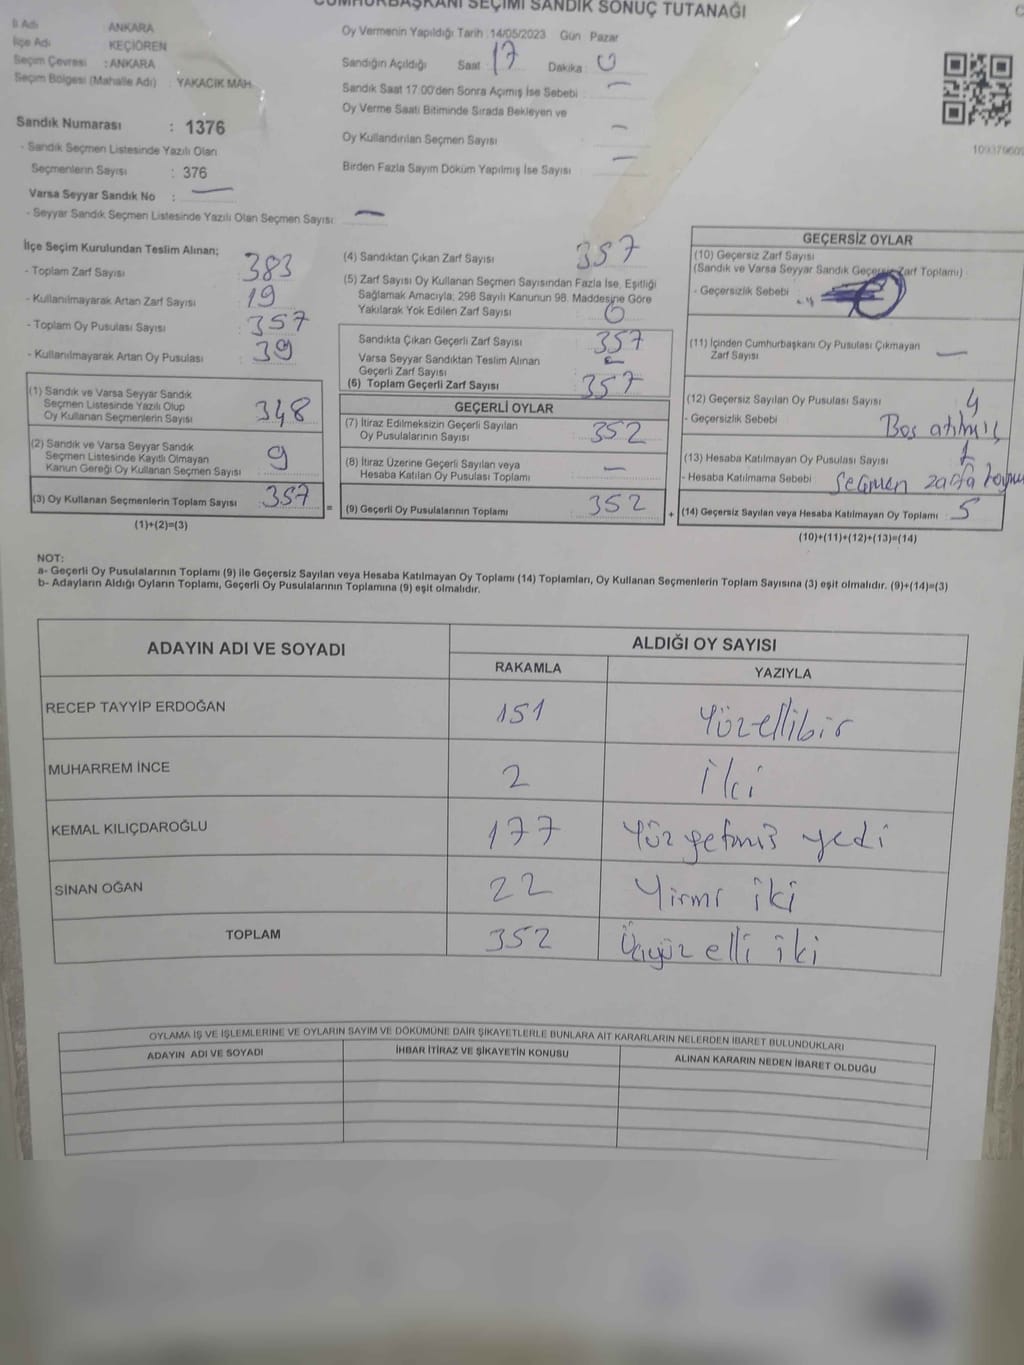 CUMHURBAŞKANI SEÇİMİ SANDIK SONUÇ TUTANAĞI
İl Adı : ANKARA
İlçe Adı : KEÇİÖREN
Seçim Çevresi : ANKARA
Seçim Bölgesi (Mahalle Adı) : YAKACIK MAH.
Sandık Numarası : 1376
- Sandık Seçmen Listesinde Yazılı Olan
Seçmenlerin Sayısı : 376
Varsa Seyyar Sandık No : —
- Seyyar Sandık Seçmen Listesinde Yazılı Olan Seçmen Sayısı : —
Oy Vermenin Yapıldığı Tarih :14/05/2023 Gün Pazar
Sandığın Açıldığı Saat : 17 Dakika : 0
Sandık Saat 17:00'den Sonra Açımış İse Sebebi : —
Oy Verme Saati Bitiminde Sırada Bekleyen ve
Oy Kullandırılan Seçmen Sayısı : —
Birden Fazla Sayım Döküm Yapılmış İse Sayısı : —
İlçe Seçim Kurulundan Teslim Alınan;
- Toplam Zarf Sayısı : 383
- Kullanılmayarak Artan Zarf Sayısı : 19
- Toplam Oy Pusulası Sayısı : 357
- Kullanılmayarak Artan Oy Pusulası : 39
(1) Sandık ve Varsa Seyyar Sandık
Seçmen Listesinde Yazılı Olup
Oy Kullanan Seçmenlerin Sayısı : 348
(2) Sandık ve Varsa Seyyar Sandık
Seçmen Listesinde Kayıtlı Olmayan
Kanun Gereği Oy Kullanan Seçmen Sayısı : 9
(3) Oy Kullanan Seçmenlerin Toplam Sayısı : 357
(1)+(2)=(3)
(4) Sandıktan Çıkan Zarf Sayısı : 357
(5) Zarf Sayısı Oy Kullanan Seçmen Sayısından Fazla İse, Eşitliği
Sağlamak Amacıyla; 298 Sayılı Kanunun 98. Maddesine Göre
Yakılarak Yok Edilen Zarf Sayısı : 0
Sandıkta Çıkan Geçerli Zarf Sayısı : 357
Varsa Seyyar Sandıktan Teslim Alınan
Geçerli Zarf Sayısı :
(6) Toplam Geçerli Zarf Sayısı : 357
GEÇERLİ OYLAR
(7) İtiraz Edilmeksizin Geçerli Sayılan
Oy Pusulalarının Sayısı : 352
(8) İtiraz Üzerine Geçerli Sayılan veya
Hesaba Katılan Oy Pusulası Toplamı : —
(9) Geçerli Oy Pusulalarının Toplamı : 352
=
+
GEÇERSİZ OYLAR
(10) Geçersiz Zarf Sayısı
(Sandık ve Varsa Seyyar Sandık Geçersiz Zarf Toplamı)
- Geçersizlik Sebebi :
(11) İçinden Cumhurbaşkanı Oy Pusulası Çıkmayan
Zarf Sayısı —
(12) Geçersiz Sayılan Oy Pusulası Sayısı : 4
- Geçersizlik Sebebi : Boş atılmış
(13) Hesaba Katılmayan Oy Pusulası Sayısı : 1
- Hesaba Katılmama Sebebi : Seçmen zarfa
(14) Geçersiz Sayılan veya Hesaba Katılmayan Oy Toplamı : 5
(10)+(11)+(12)+(13)=(14)
NOT:
a- Geçerli Oy Pusulalarının Toplamı (9) ile Geçersiz Sayılan veya Hesaba Katılmayan Oy Toplamı (14) Toplamları, Oy Kullanan Seçmenlerin Toplam Sayısına (3) eşit olmalıdır. (9)+(14)=(3)
b- Adayların Aldığı Oyların Toplamı, Geçerli Oy Pusulalarının Toplamına (9) eşit olmalıdır.
ADAYIN ADI VE SOYADI ALDIĞI OY SAYISI
RAKAMLA YAZIYLA
RECEP TAYYİP ERDOĞAN 151 Yüzellibir
MUHARREM İNCE 2 İki
KEMAL KILIÇDAROĞLU 177 Yüz yetmiş yedi
SİNAN OĞAN 22 Yirmi iki
TOPLAM 352 Üçyüz elli iki
OYLAMA İŞ VE İŞLEMLERİNE VE OYLARIN SAYIM VE DÖKÜMÜNE DAİR ŞİKAYETLERLE BUNLARA AİT KARARLARIN NELERDEN İBARET BULUNDUKLARI
ADAYIN ADI VE SOYADI İHBAR İTİRAZ VE ŞİKAYETİN KONUSU ALINAN KARARIN NEDEN İBARET OLDUĞU